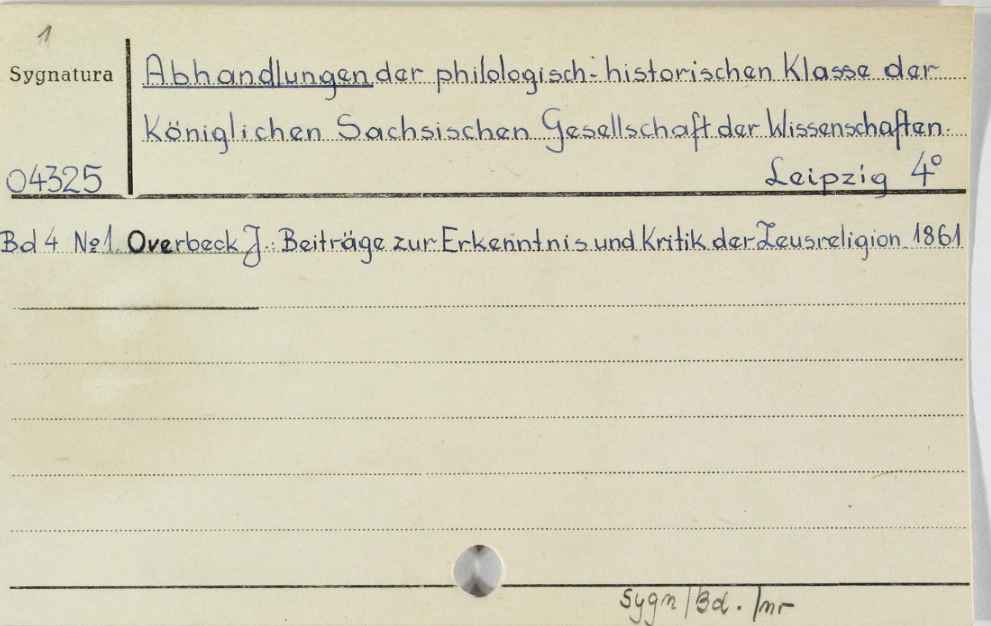 1
Sygnatura
Abhandlungen der philologisch-historischen Klasse der
Königlichen Sachsischen Gesellschaft der Wissenschaften.
04325
Leipzig 4°
Bd 4 No 1. Overbeck J.: Beiträge zur Erkenntnis und Kritik der Zeusreligion 1861
Sygn/Bd./nr